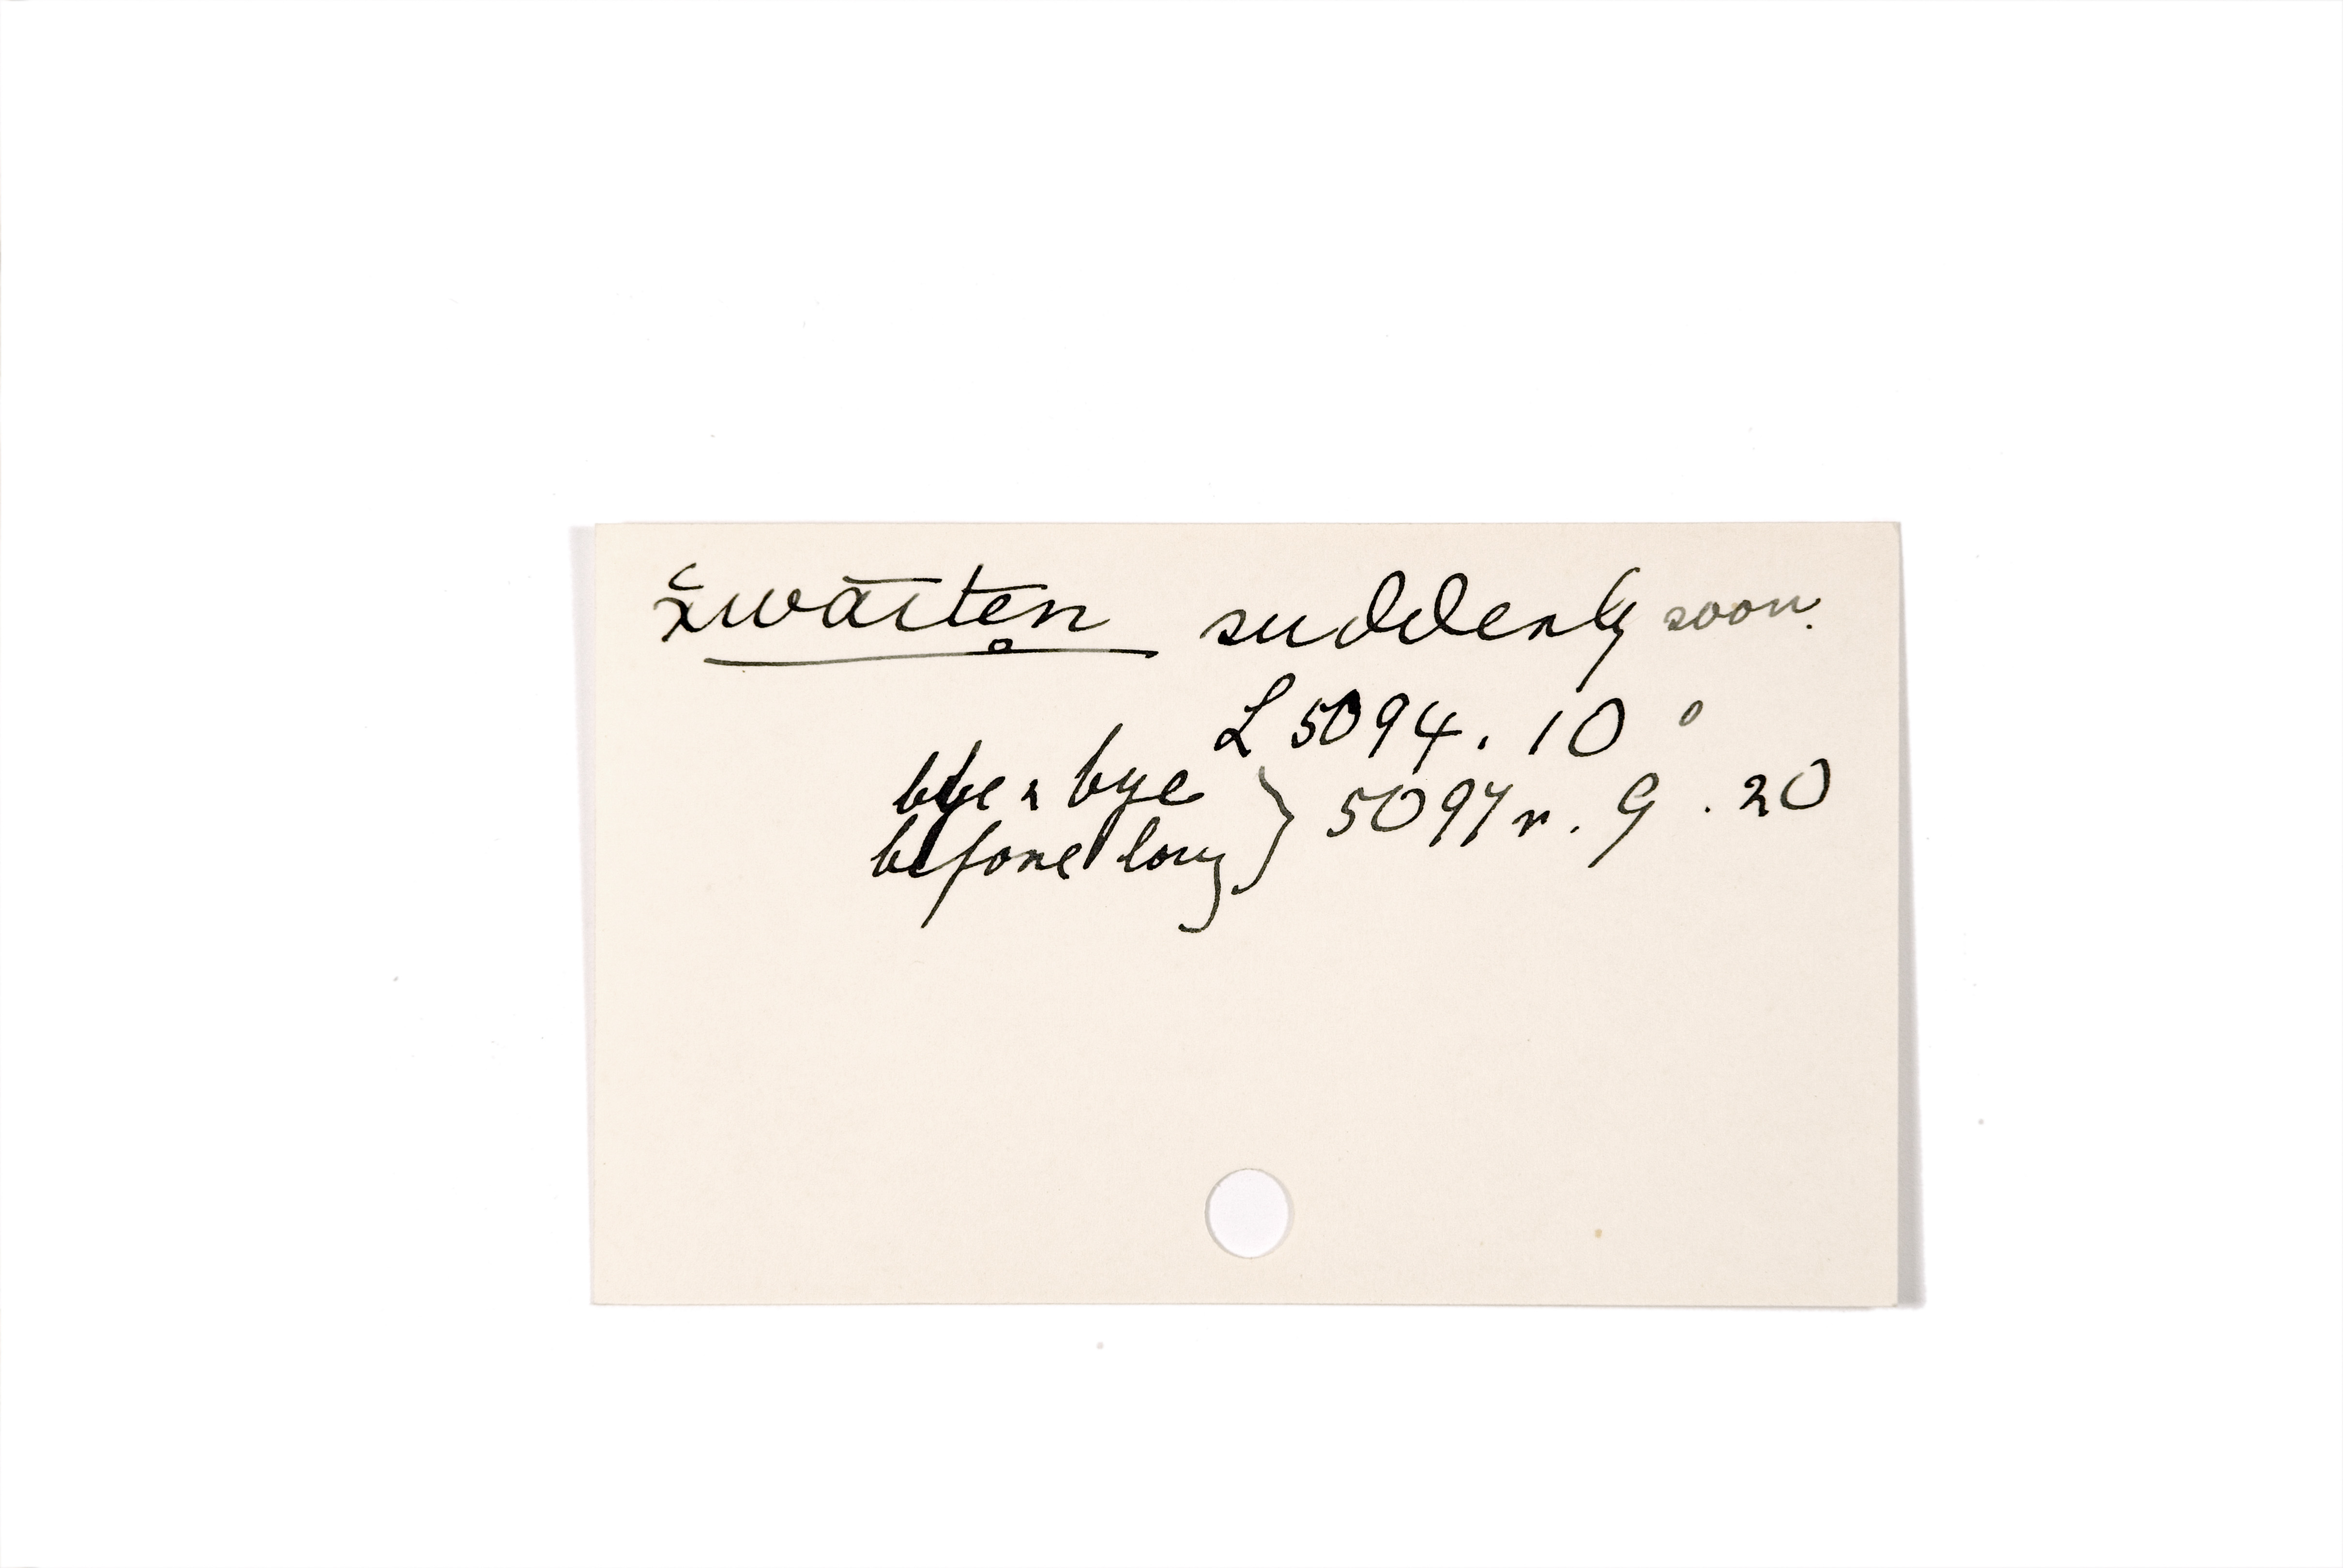 ẋwāitẹn suddenly soon.
L 5094. 10
bye & bye } 5097r. 9. 20
before long